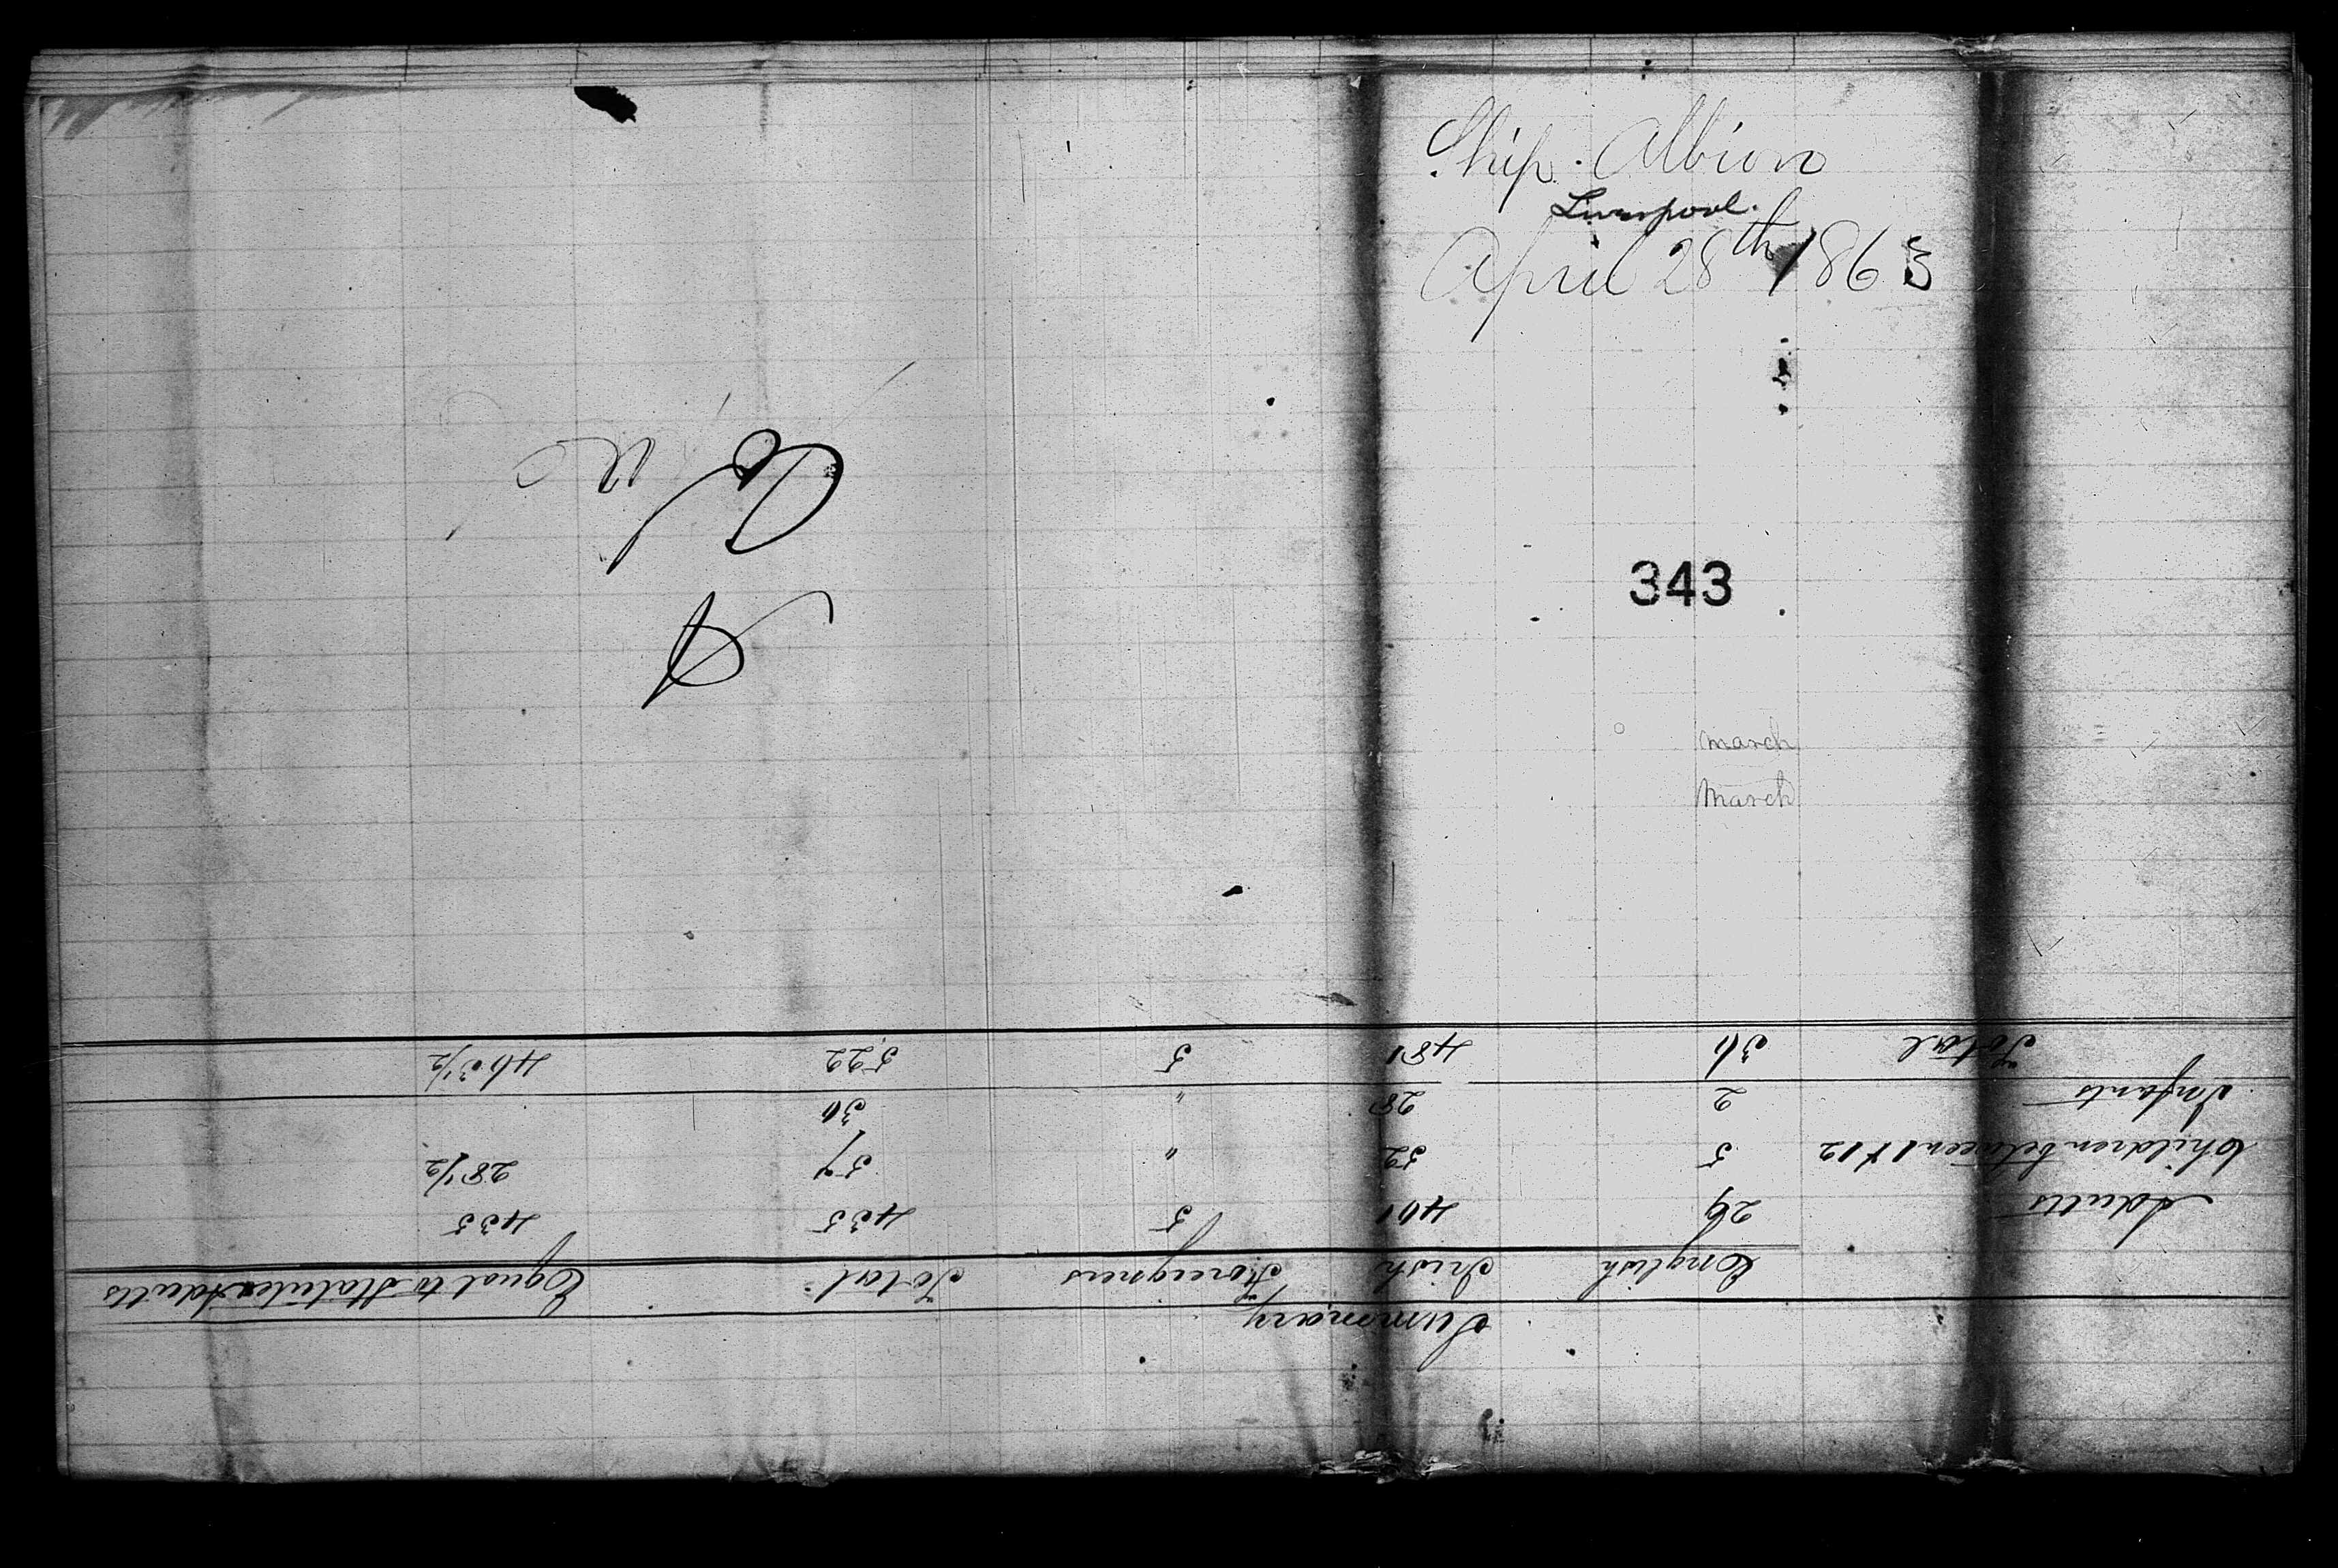 Ship. Albion
Liverpool.
April 28th 1863
343
march
March
Summary
English Irish Foreigners Total Equal to Statute Adults
Adults 29 401 5 435 435
Children between 1 & 12 5 52 " 57 28 1/2
Infants 2 28 " 30
Total 36 481 5 522 463 1/2